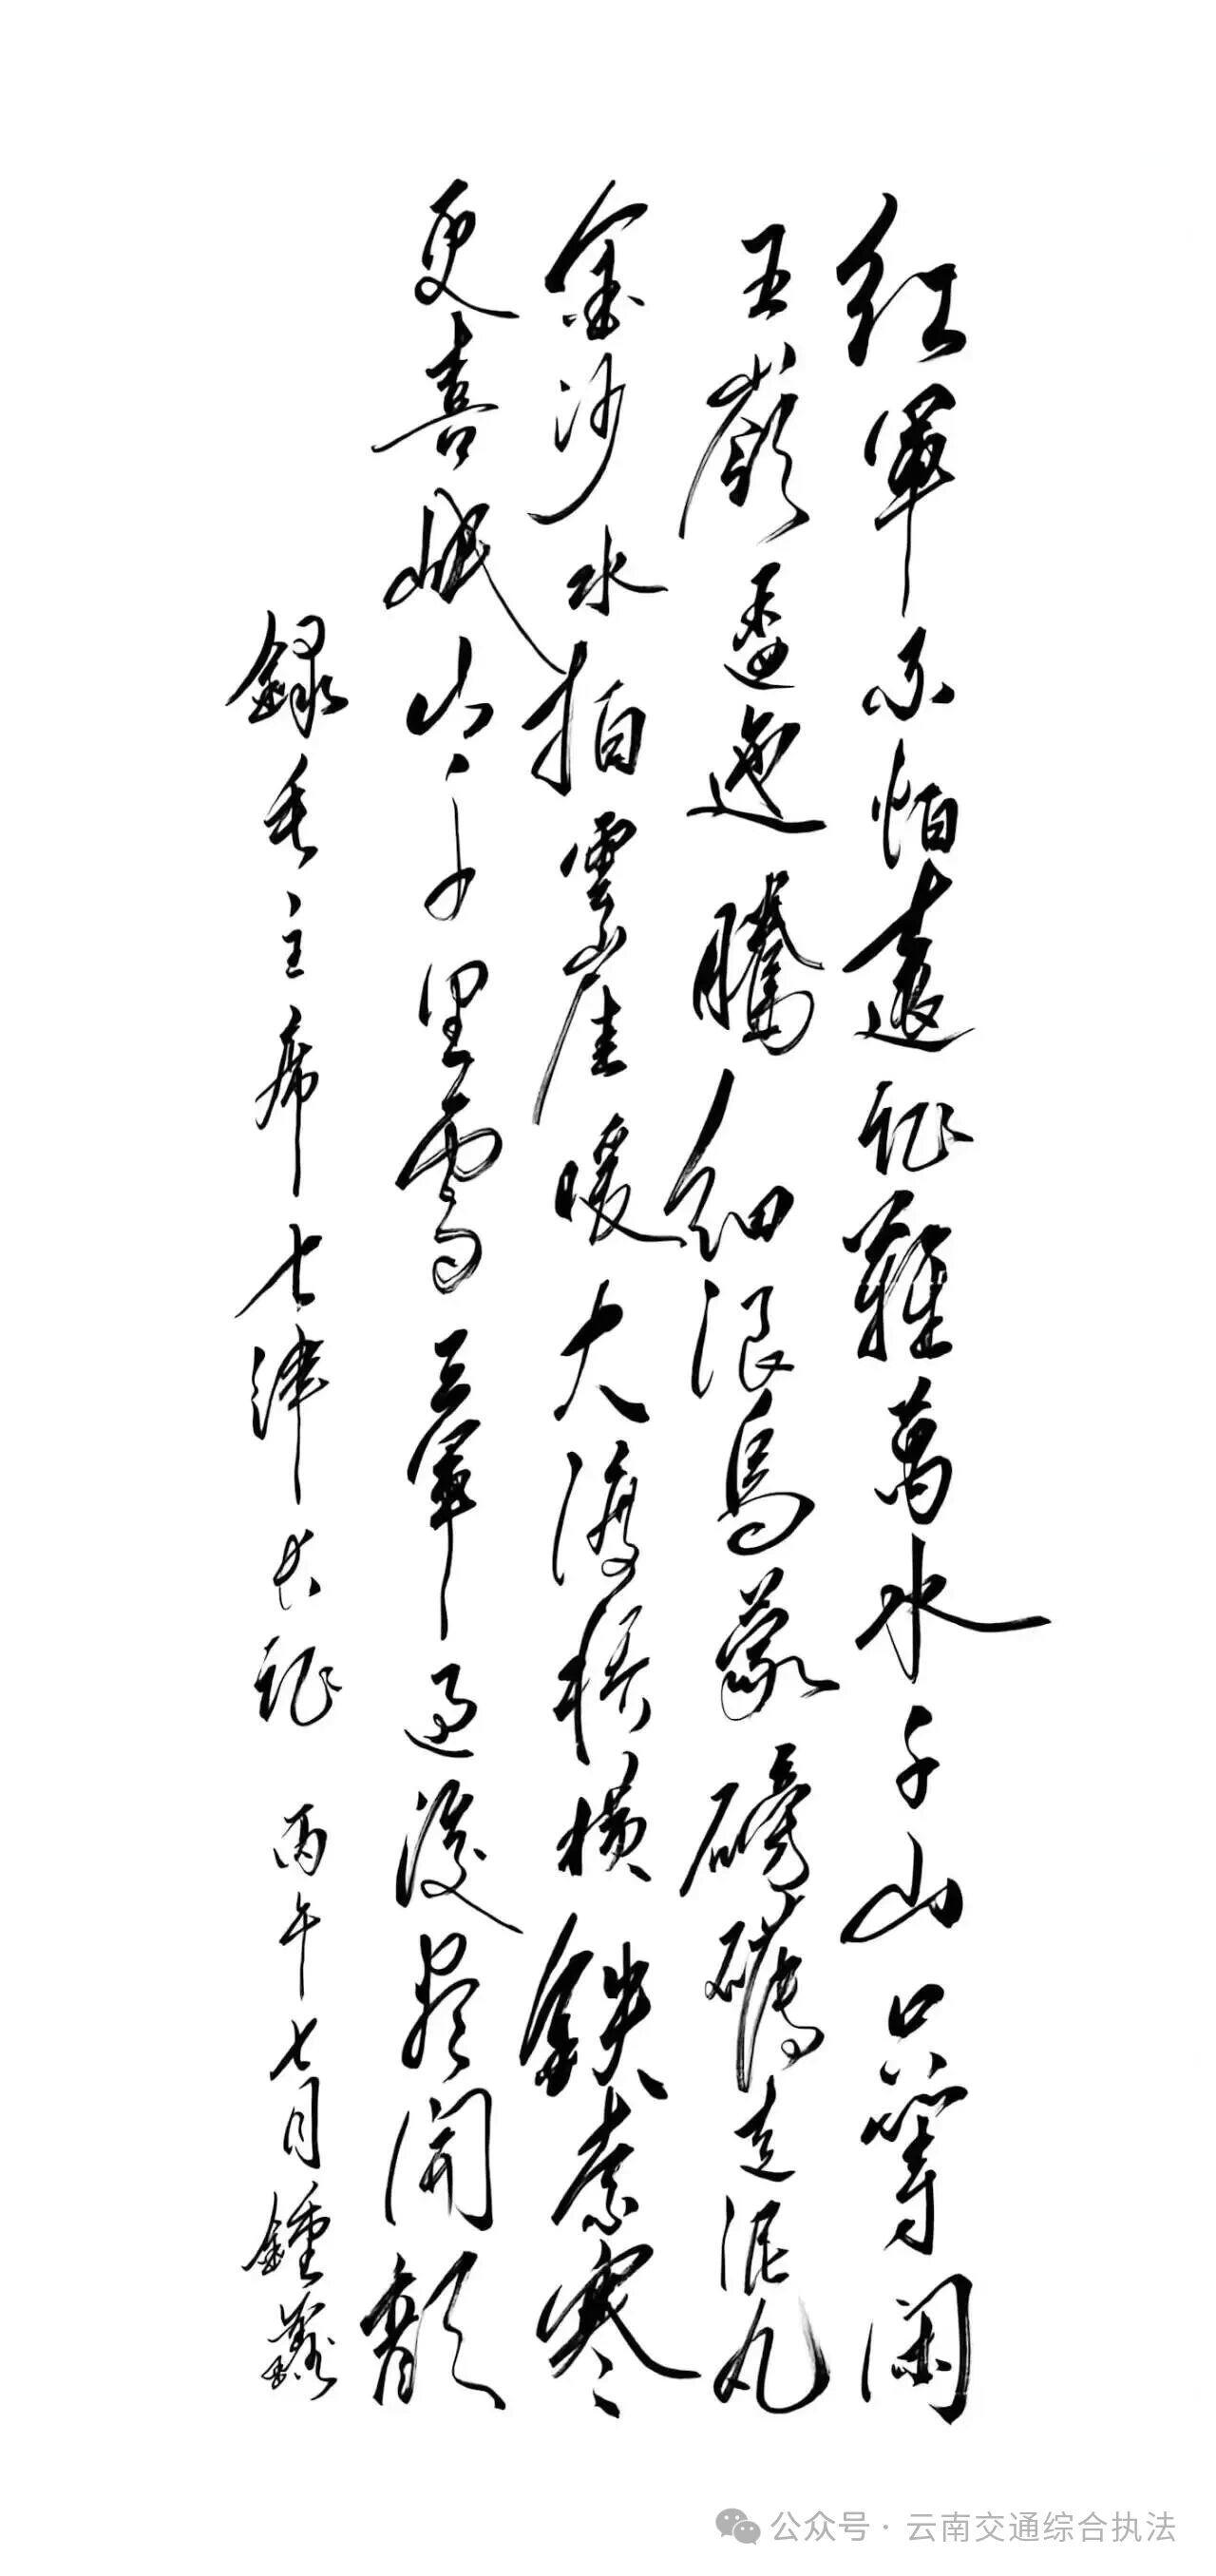 紅軍不怕遠征難萬水千山只等閑
五嶺逶迤騰細浪烏蒙磅礴走泥丸
金沙水拍雲崖暖大渡橋橫鐵索寒
更喜岷山千里雪三軍過後盡開顏
錄毛主席七律長征 丙午七月鍾
公众号 · 云南交通综合执法